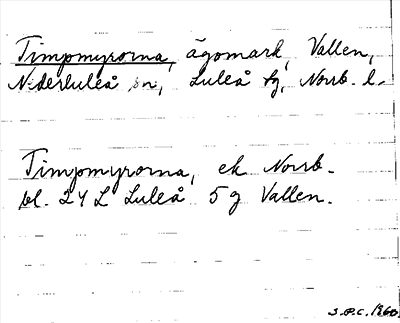 Timpmyrorna, ägomark, Vallen,
Nederluleå sn, Luleå tg, Norrb. l.
Timpmyrorna, ek Norrb.
bl. 24 L Luleå 5 g Vallen.
S.P.C. 1960